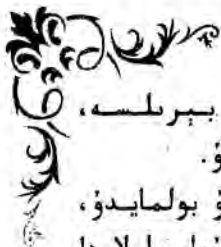 بېرىلسە،
ۇ.
ۇ بولمايدۇ،